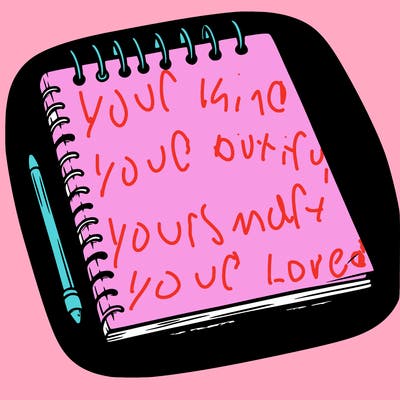 your kind
your butify
yoursmart
your Loved